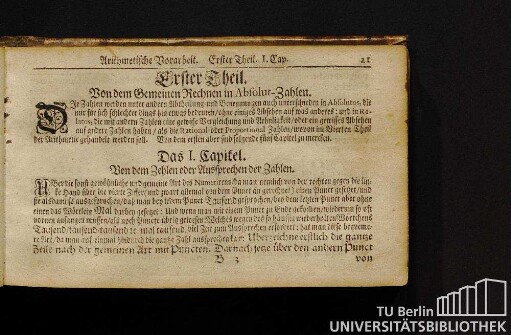 Arithmetische Vorarbeit. Erster Theil. I. Cap. 21
Erster Theil.
Von dem Gemeinen Rechnen in Absolut-Zahlen.
Die Zahlen werden unter andern Abtheilung und Benennungen auch unterschieden in Absolutas, die
nur für sich schlechter dings hin etwas bedeuten/ohne einiges Absehen auf was anderes: und in Re-
latas, die mit andern Zahlen eine gewisse Vergleichung und Aehnlichkeit/oder ein gewisses Absehen
auf andere Zahlen haben/als die Rational- oder Proportional Zahlen/wovon im Vierten Theil
der Arithmetic gehandelt werden soll. Von dem ersten aber sind folgende fünf Capitel zu mercken.
Das I. Capitel.
Von dem Zehlen oder Aussprechen der Zahlen.
Uber die sonst gewöhnliche und gemeine Art des Numerirens da man nemlich von der rechten gegen die lin-
cke Hand über die vierte Ziffer und zwar allemal von dem Punct an gerechnet) einen Punct gesetzet/und
sie alsdann so ausgesprochen/daß man bey jedem Punct Tausend gesprochen/bey dem letzten Punct aber ohne
einen das Wörtlein Mal darzu gesetzt: Und wenn man mit einem Punct zu Ende gekommen/wiederum so oft
vornen anfangen müssen/als noch Puncte übrig gewesen Welches wegen des so häuffig wiederholten Wörtleins
Tausend/tausend-tausend te mal tausend, viel Zeit zum Aussprechen erfordert: hat man diese bequeme-
re Art, da man auf einmal hindurch die gantze Zahl aussprechen kan: Uberzeichne erstlich die gantze
Zeile nach der gemeinen Art mit Puncten. Darnach setze über den andern Punct
B 3 von
TU Berlin
UNIVERSITÄTSBIBLIOTHEK